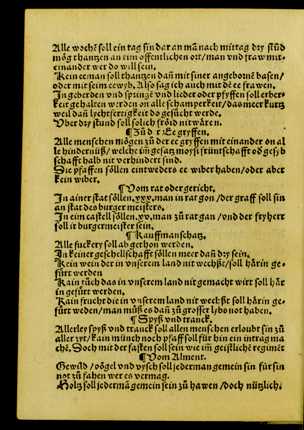 Alle wochē soll ein tag sin dar an mā nach mittag dry stūd
mög thantzen an eim offentlichen ort / man vnd fraw mit-
einander wer do will sein.
Kein eeman soll thantzen dañ mit siner angebornē basen /
oder mit seim eewyb. Also sag ich auch mit dē ee frawen.
In geberden vnd sprüngē vnd lieder oder pfyffen soll erber-
keit gehalten werden on alle schamperkeit / das meer kurtz
weil dañ lychtfertigkeit do gesücht werde.
Vber dry stund soll solich fröid nit wären.
¶ Zů d̕ Ee gryffen.
Alle menschen mögen zů der ee gryffen mit einander on al
le hindernüß / welche im gesatz mosis früntschafft od̕ gesyb
schafft halb nit verhindert sind.
Die pfaffen söllen eintweders ee wiber haben / oder aber
kein wiber.
¶ Vom rat oder gericht.
In ainer stat söllen .xxx. man in rat gon / der graff soll sin
an stat des burger meisters.
In eim castell söllen .xv. man zů rat gan / vnd der fryherr
soll ir burgermeister sein.
¶ Kauffmanschatz.
Alle fuckery soll ab gethon werden.
In keiner gesellschafft söllen meer dañ dry sein.
Kein wein der in vnserem land nit wechßt / soll här in ge-
fürt werden
Kain tůch das in vnserem land nit gemacht wirt soll här
in gefürt werden.
Kain frucht die in vnserem land nit wechßt soll här in ge-
fürt weden / man müß es dañ zů grosser lybs not haben.
¶ Spyß vnd tranck.
Allerley spyß vnd tranck soll allen menschen erloubt sin zů
aller zyt / kain münch noch pfaff soll für hin ein intrag ma
chē. Doch mit der fasten soll sein wie im geistlichē regimēt
¶ Vom Alment.
Gewild / vögel vnd vysch soll jederman gemein sin für sin
not zů fahen wer es vermag.
Holtz soll jederman gemein sein zů hawen / doch nützlich.